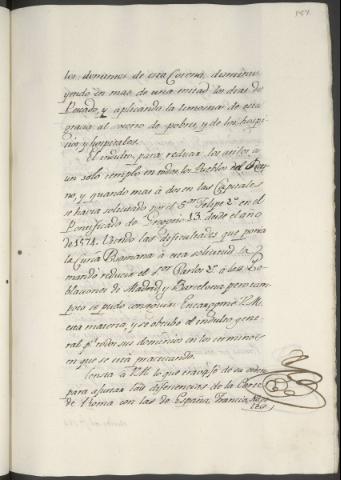 los dominios de esta Corona, disminu-
yendo en mas de una mitad los dias de
Pecado, y aplicando la limosna de esta
gracia al socorro de pobres, y de los hospi-
cios y hospitales.
El indulto para reducir los asilos a
un solo templo en todos los Pueblos del Rey-
no, y quando mas á dos en las Capitales
se havia solicitado por el S.or Felipe 2.º en el
Pontificado de Gregorio 13. desde el año
de 1574. Viendo las dificultades que ponia
la Curia Romana á esta solicitud la
mandó reducir el S.or Carlos 2.º á las Po-
blaciones de Madrid y Barcelona, pero tam-
poco se pudo conseguir. Encargome V.M.
esta materia, y se obtubo el indulto gene-
ral p.ª todos sus dominios en los terminos
en que se está practicando.
Consta á V.M. lo que travajé de su orden
para ajustar las diferencias de la Corte
de Roma con las de España, Francia,